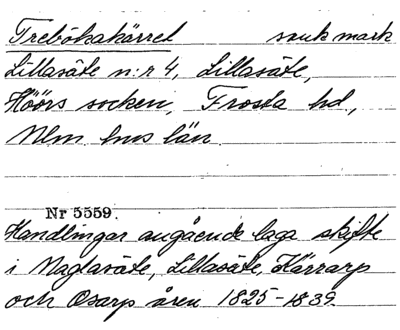 Trebökakärret sank mark
Lillasäte n:r 4, Lillasäte,
Höörs socken, Frosta hd.,
Mlm hus län
Nr 5559.
Handlingar angående laga skifte
i Maglasäte, Lillasäte, Kärrarp
och Osarp åren 1825-1839.